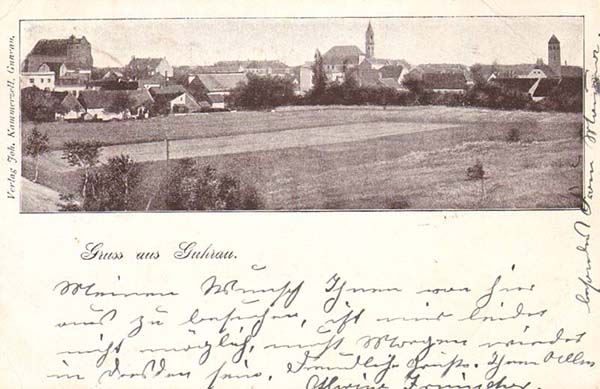 Verlag Joh. Kammerzell, Guhrau.
Gruss aus Guhrau.
Meinen Wunsch Ihnen von hier
aus zu besuchen, ist mir leider
nicht möglich, muß Morgen wieder
in Dresden sein. Freundlich. Grüße. Ihnen Allen